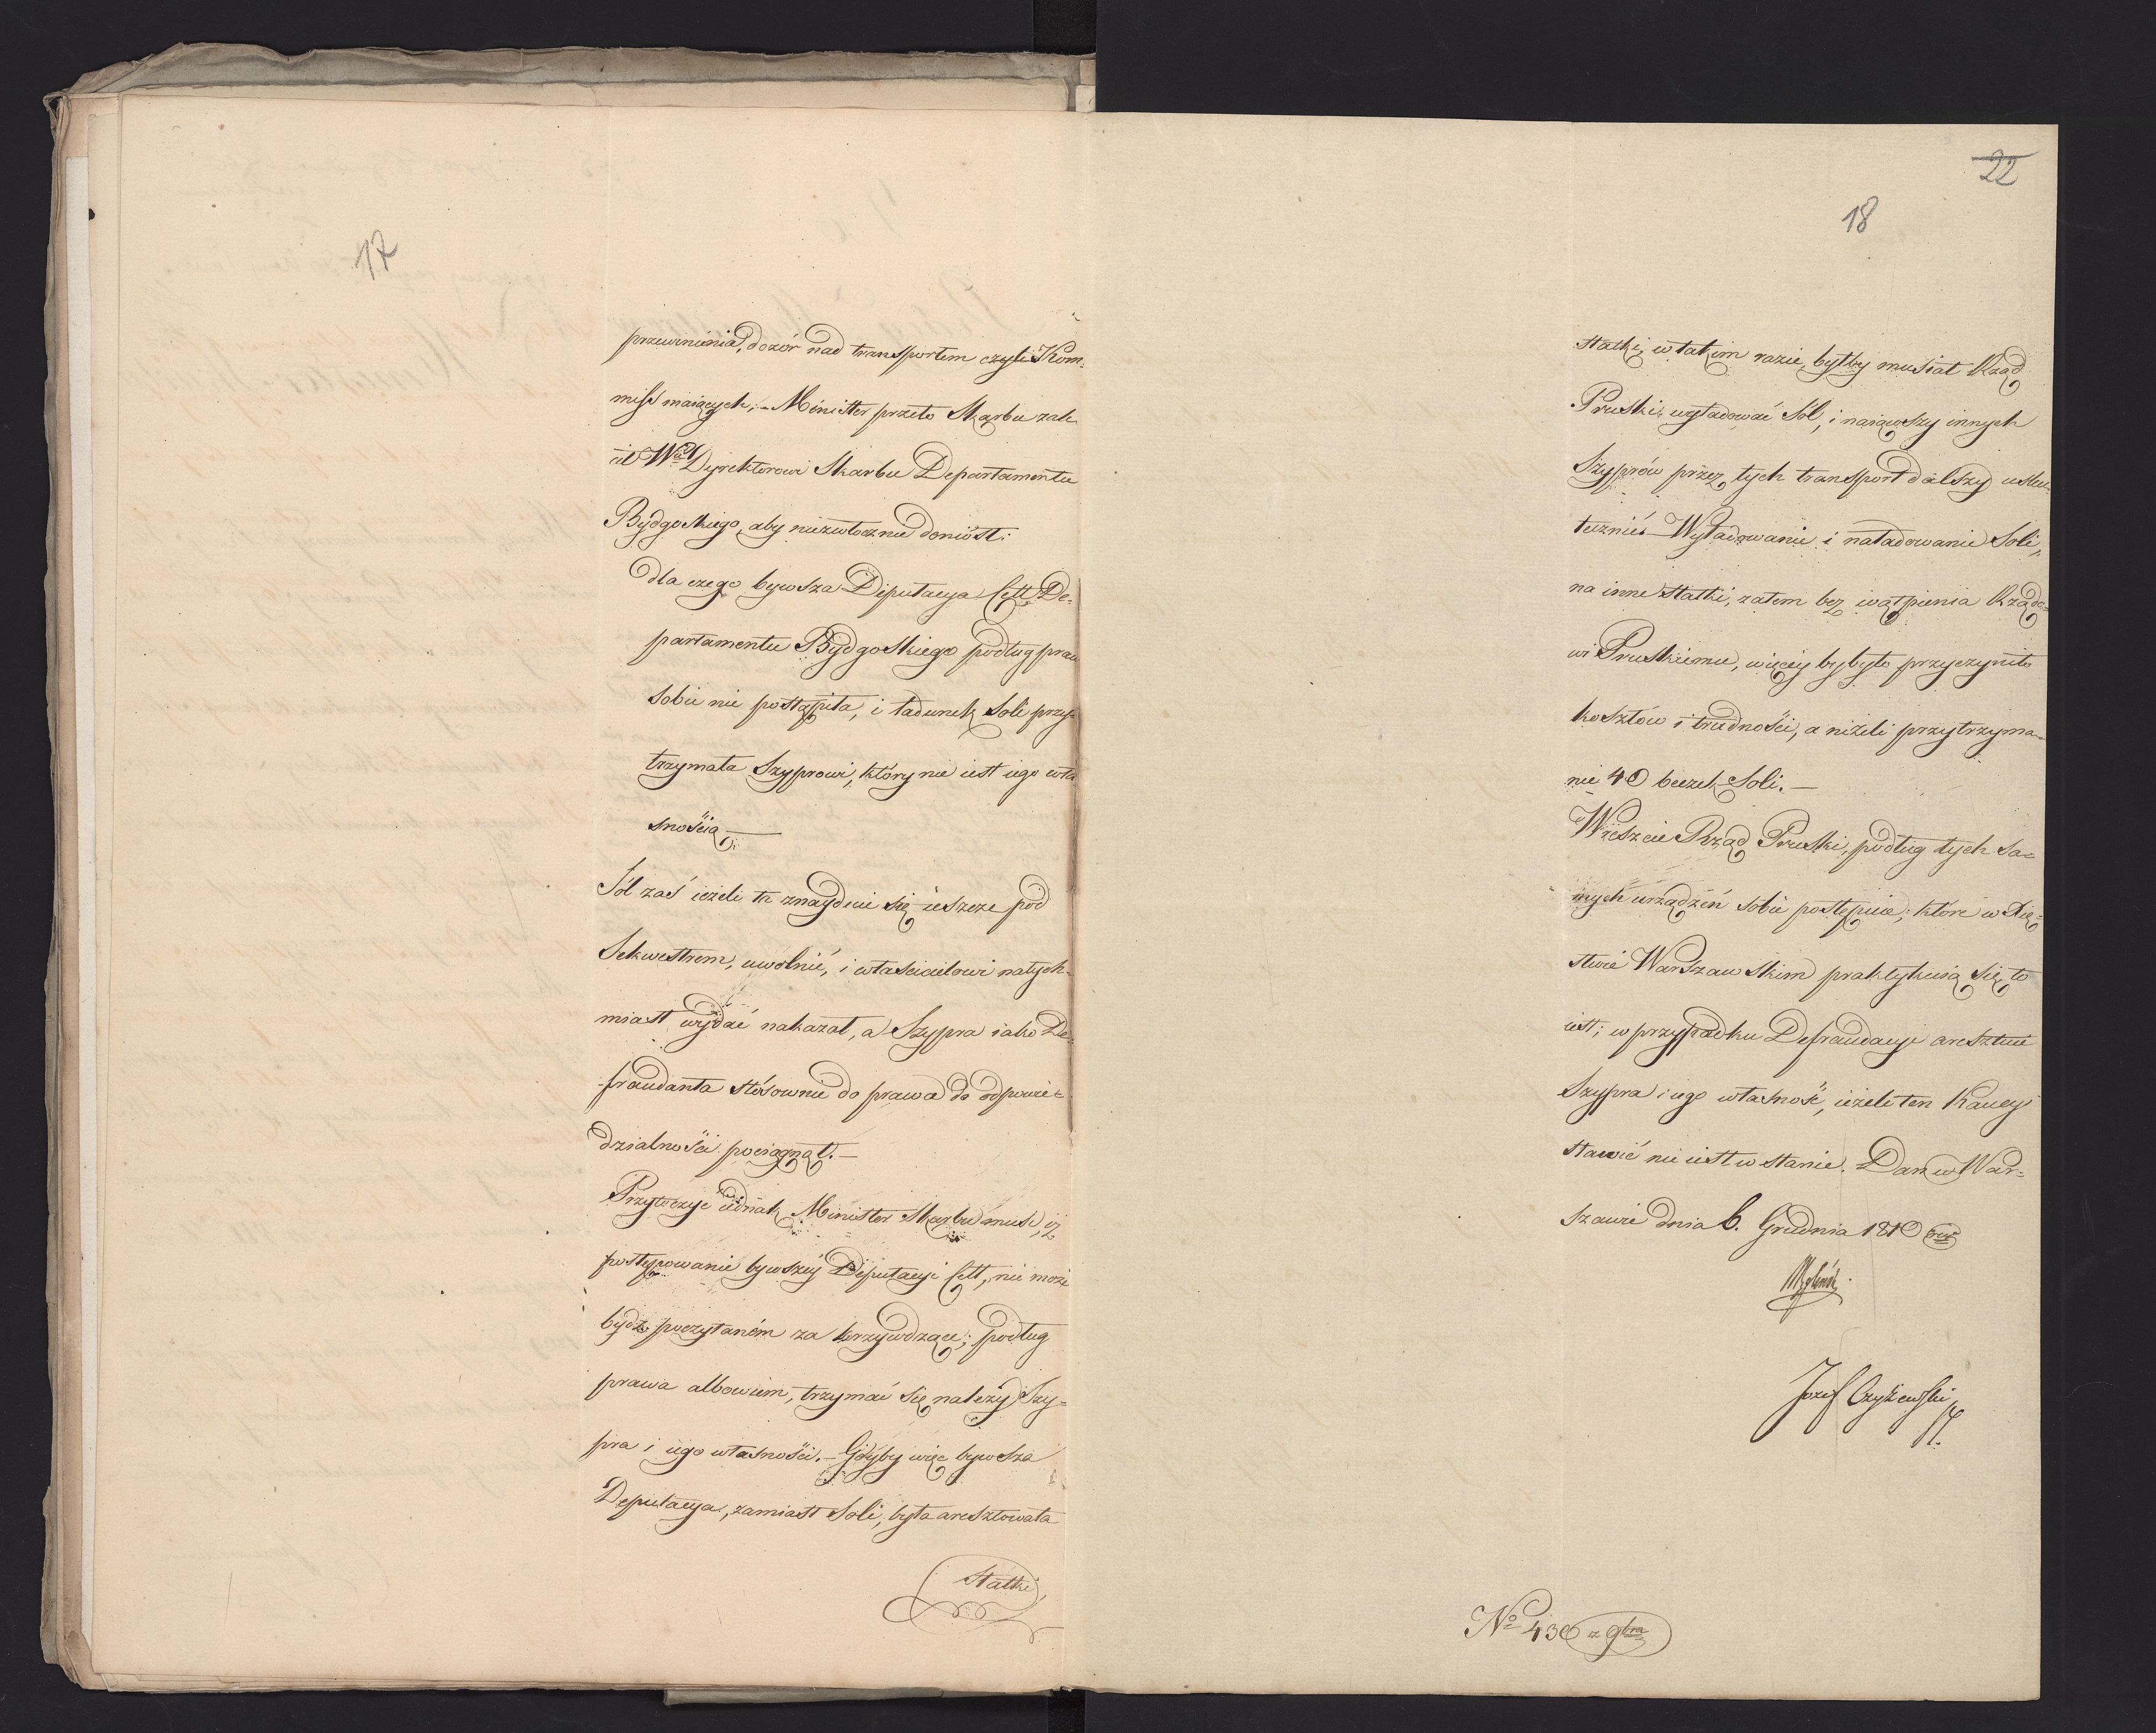 17
przewinienia, dozór nad transportem czyli Kom-
miss maiących; – Minister przeto Skarbu zale
cił Wmu Dyrektorowi Skarbu Departamentu
Bydgoskiego, aby niezwłocznie doniósł:
dla czego bywsza Deputacya Cell: De-
partamentu Bydgoskiego podług praw
sobie nie postąpiła, i ładunek Soli przy-
trzymała Szyprowi, który nie iest iego wła
snością –
Sól zaś ieżeli ta znayduie się ieszcze pod
Sekwestrem, uwolnić, i właścicielowi natych-
miast wydać nakazał, a Szypra iako De-
fraudanta stósownie do prawa do odpowie-
dzialności pociągnął. –
Przytoczyć iednak Minister Skarbu musi, iż
postępowanie bywszéy Deputacyi Cell, nie może
bydź poczytaném za krzywdzące; podług
prawa albowiem, trzymać się należy Szy-
pra i iego własności. – Gdyby więc bywsza
Deputacya, zamiast Soli, była aresztowała
Statki,
22
18
statki, w takim razie, byłby musiał Rząd
Pruski wyładować Sól, i naiąwszy innych
Szyprów przez tych transport dalszy usku-
tecznić. – Wyładowanie i naładowanie Soli,
na inne statki, zatem bez wątpienia Rządo-
wi Pruskiemu, więcéy by było przyczyniło
kosztów i trudności, a niżeli przytrzyma-
nie 40 beczek Soli. –
Wreszcie Rząd Pruski, podług tych sa-
mych urządzeń sobie postępuie, które w Xię-
stwie Warszawskim praktykuią się, to
iest; w przypadku Defraudacyi aresztuie
Szypra i iego własność, ieżeli ten Kaucyi
stawić nie iest w stanie. Dan w War-
szawie dnia 6. Grudnia 1810 
Józef Czyżewski
No 430 z 9bra